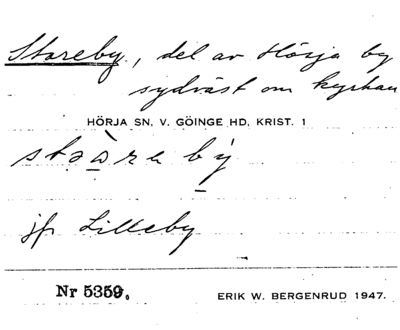 Storeby, del av Hörja by
sydväst om kyrkan
HÖRJA SN. V. GÖINGE HD. KRIST. 1
by
jfr Lilleby
Nr 5359.
ERIK W. BERGENRUD 1947.